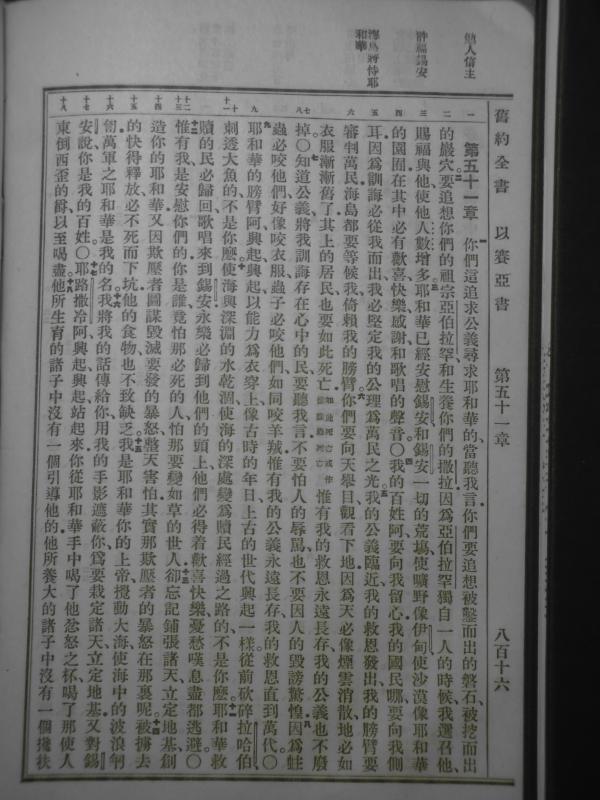 舊約全書 以賽亞書 第五十一章 八百十六
勉人信主
許福錫安
當恃耶
和華
一
二
三
四
五
六
七
八
九
十
十一
十二
十三
十四
十五
十六
十七
十八
第五十一章 一你們這追求公義尋求耶和華的當聽我言你們要追想被鑿而出的磐石被挖而出
的巖穴二要追想你們的祖宗亞伯拉罕和生養你們的撒拉因爲亞伯拉罕獨自一人的時候我選召他
賜福與他使他人數增多三耶和華已經安慰錫安和錫安一切的荒場使曠野像伊甸使沙漠像耶和華
的園囿在其中必有歡喜快樂感謝和歌唱的聲音〇四我的百姓阿要向我留心我的國民哪要向我側
耳因爲訓誨必從我而出我必堅定我的公理爲萬民之光五我的公義臨近我的救恩發出我的膀臂要
審判萬民海島都要等候我倚賴我的膀臂六你們要向天舉目觀看下地因爲天必像煙雲消散地必如
衣服漸漸舊了其上的居民也要如此死亡如此死亡或作像蠓蟲死亡惟有我的救恩永遠長存我的公義也不廢
掉〇七知道公義將我訓誨存在心中的民要聽我言不要怕人的辱罵也不要因人的毀謗驚惶八因爲蛀
蟲必咬他們好像咬衣服蟲子必咬他們如同咬羊羢惟有我的公義永遠長存我的救恩直到萬代〇
九耶和華的膀臂阿興起興起以能力爲衣穿上像古時的年日上古的世代興起一樣從前砍碎拉哈伯
刺透大魚的不是你麽十使海與深淵的水乾涸使海的深處變爲贖民經過之路的不是你麽十一耶和華救
贖的民必歸回歌唱來到錫安永樂必歸到他們的頭上他們必得着歡喜快樂憂愁嘆息盡都逃避〇
十二惟有我是安慰你們的你是誰竟怕那必死的人怕那要變如草的世人十三卻忘記鋪張諸天立定地基創
造你的耶和華又因欺壓者圖謀毀滅要發的暴怒整天害怕其實那欺壓者的暴怒在那裏呢十四被擄去
的快得釋放必不死而下坑他的食物也不致缺乏十五我是耶和華你的上帝攪動大海使海中的波浪匉
訇萬軍之耶和華是我的名十六我將我的話傳給你用我的手影遮蔽你爲要栽定諸天立定地基又對錫
安說你是我的百姓〇十七耶路撒冷阿興起興起站起來你從耶和華手中喝了他忿怒之杯喝了那使人
東倒西歪的爵以至喝盡十八他所生育的諸子中沒有一個引導他的他所養大的諸子中沒有一個攙扶